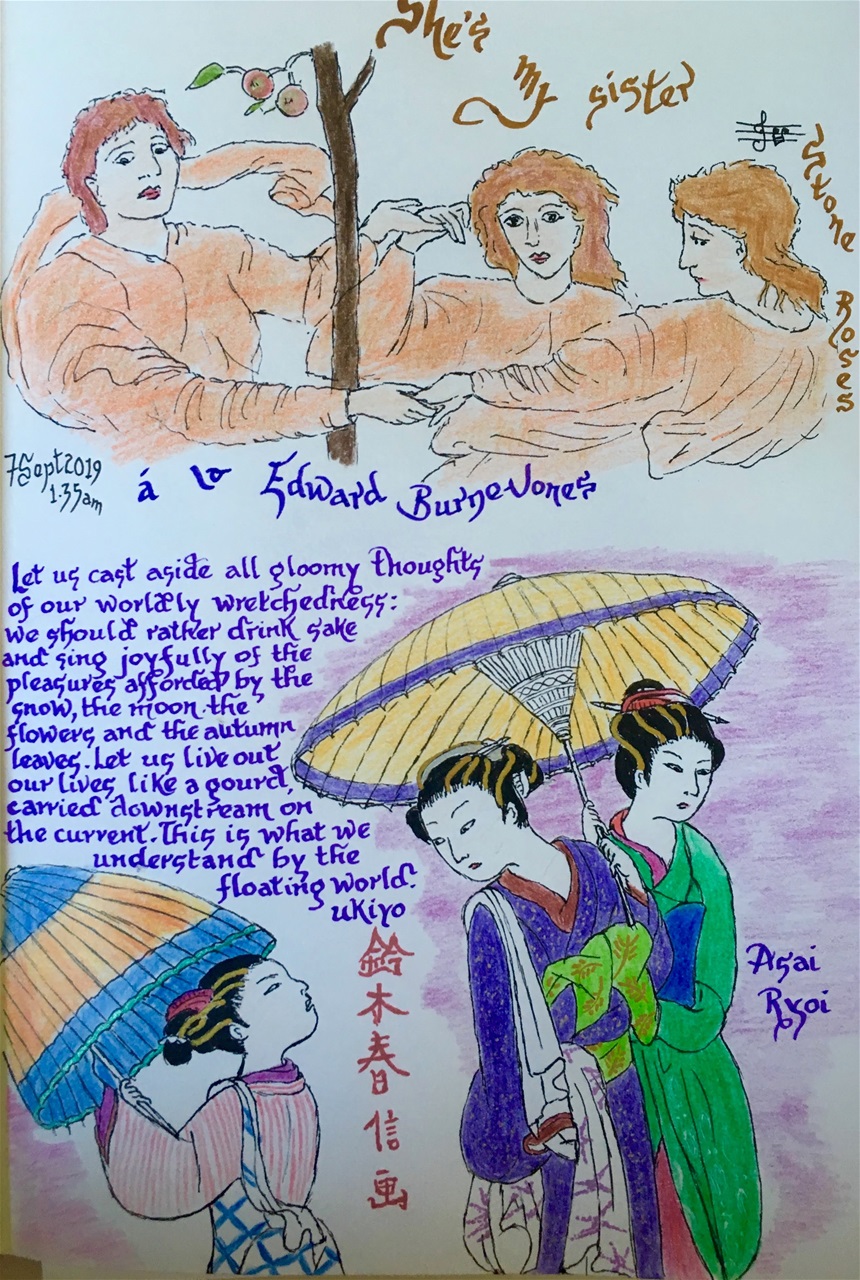 She's
my sister
Stone
Roses
7 Sept 2019
1.35am
á la Edward Burne-Jones
Let us cast aside all gloomy thoughts
of our worldly wretchedness:
we should rather drink sake
and sing joyfully of the
pleasures afforded by the
snow, the moon the
flowers and the autumn
leaves. Let us live out
our lives, like a gourd,
carried downstream on
the current. This is what we
understand by the
floating world.
ukiyo
Asai
Ryoi
鈴
木
春
信
画